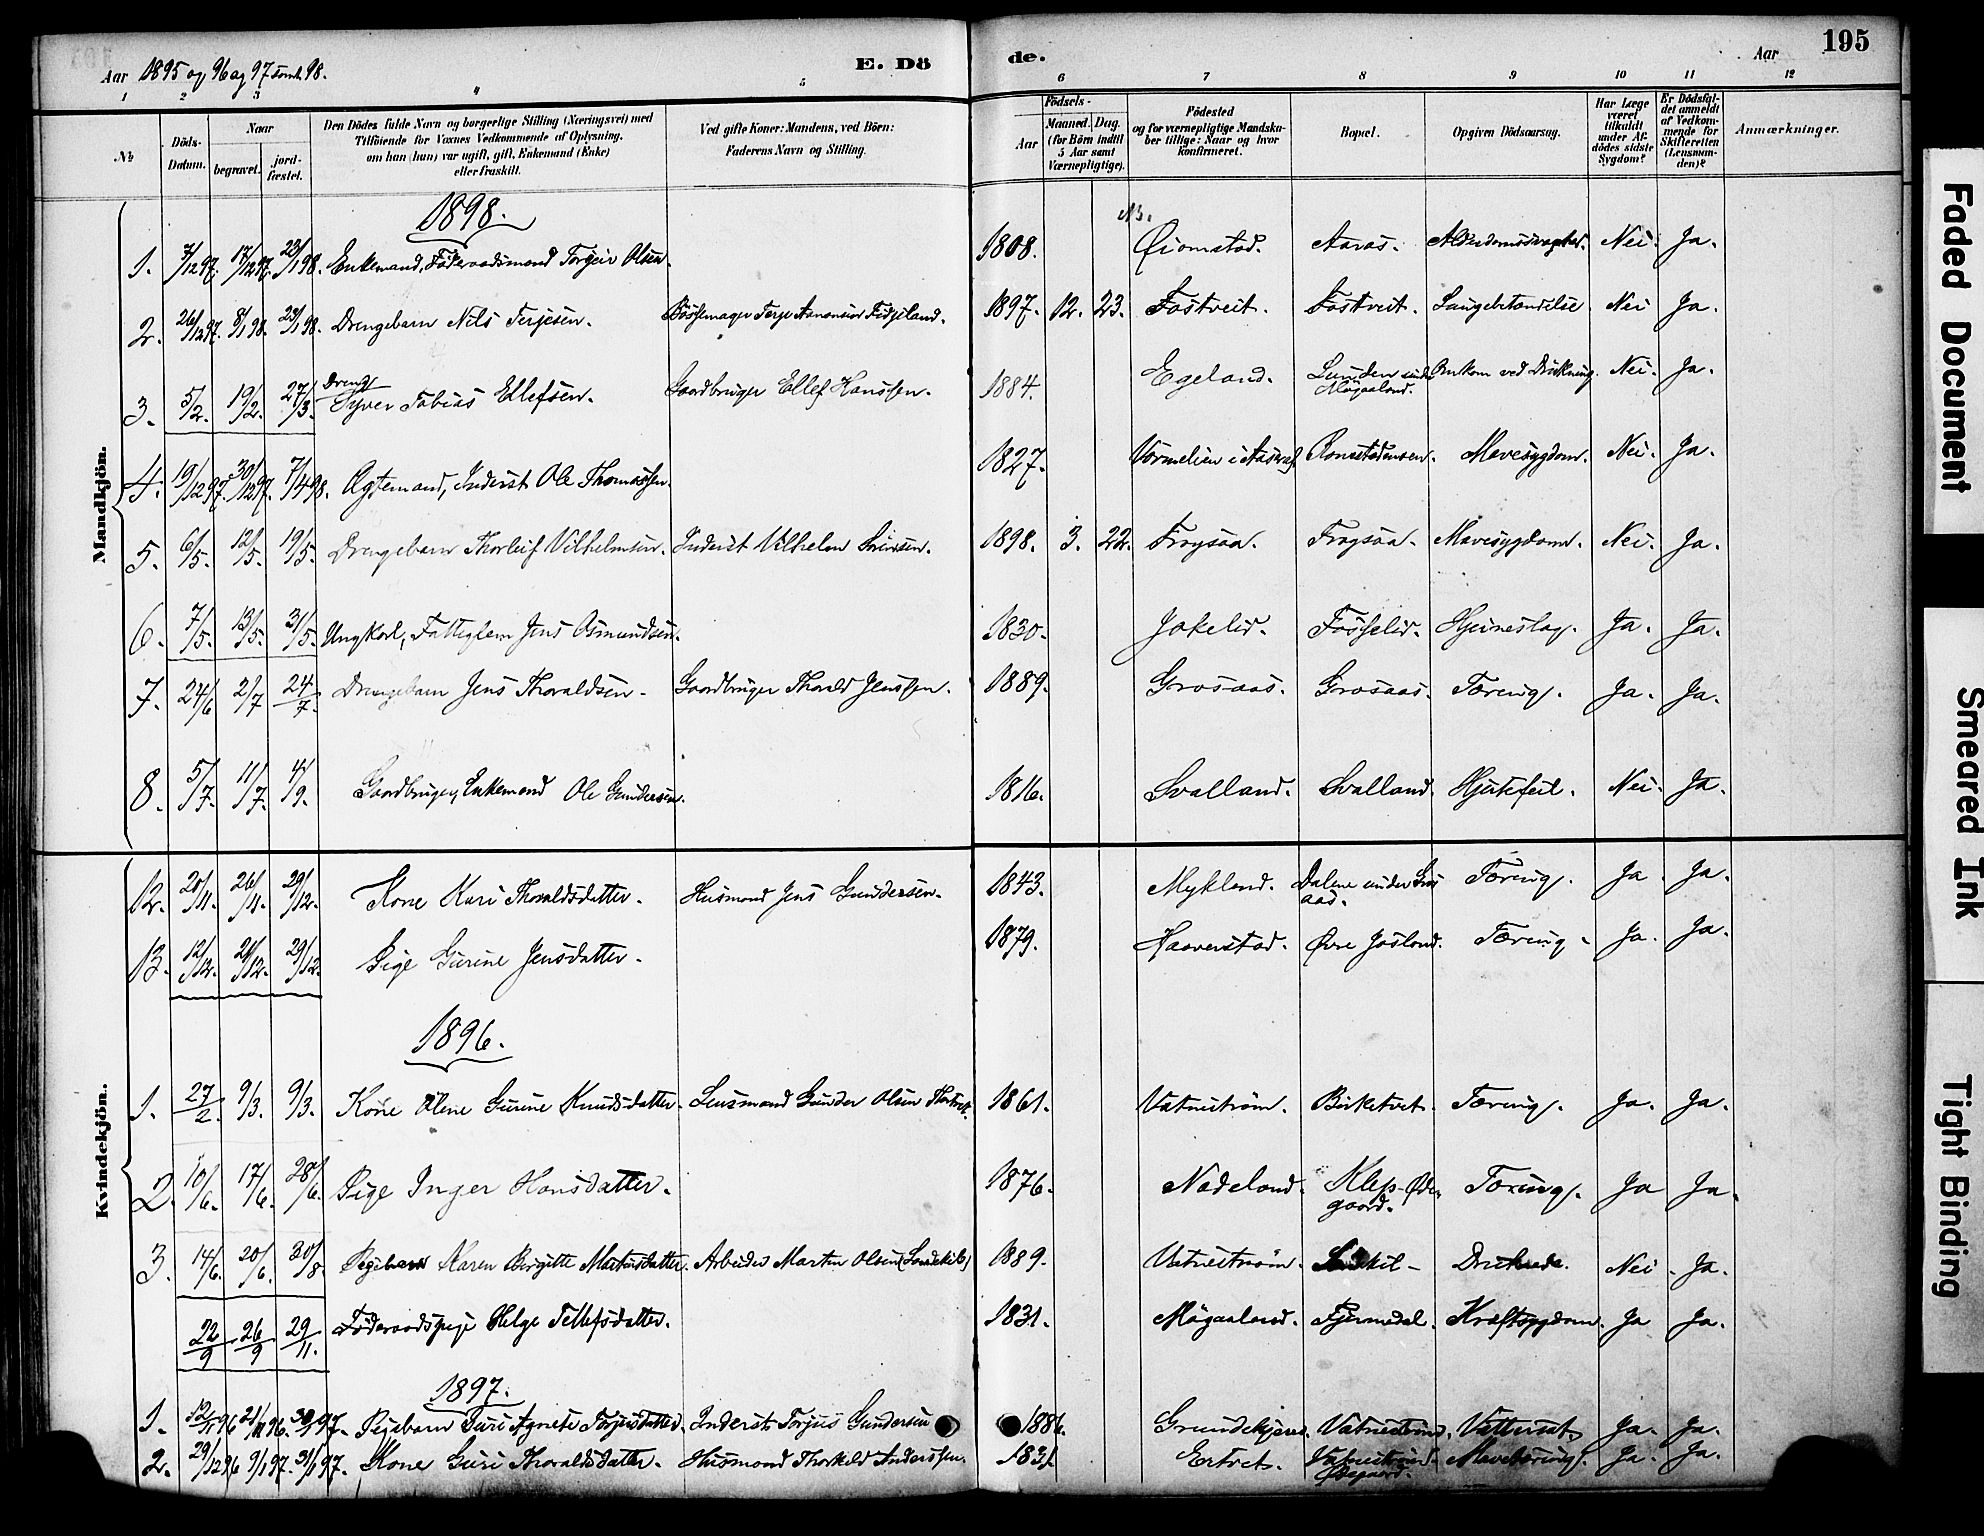 Aar 1895 og 96 og 97 samt 98.
E. Dö
de.
Aar
195
1 2 3 4 5 6 7 8 9 10 11 12
№
Döds-Datum.
Naar
begravet.
jord-fæstet.
Den Dödes fulde Navn og borgerlige Stilling (Næringsvei) med
Tilföiende for Voxnes Vedkommende af Oplysning,
om han (hun) var ugift, gift, Enkemand (Enke)
eller fraskilt.
Ved gifte Koner: Mandens, ved Börn:
Faderens Navn og Stilling.
Födsels-
Aar
Maaned. Dag.
(for Börn indtil
5 Aar samt
Værnepligtige).
Födested
og for værnepligtige Mandska-
ber tillige: Naar og hvor
konfirmeret.
Bopæl.
Opgiven Dödsaarsag.
Har Læge
været
tilkaldt
under Af-
dödes sidste
Sygdom?
Er Dödsfal-
det anmeldt
af Vedkom-
mende for
Skifteretten
(Lensman-
den)?
Anmærkninger.
Mandkjön.
1898.
1. 7/12 97. 17/12 97. 23/1 98. Enkemand, Föderaadsmand Torgeir Olsen. 1808. Øiomstad. Aaraas. Alderdomssvaghed. Nei. Ja.
2. 26/12 97. 8/1 98. 23/1 98. Drengebarn Nils Terjesen. Bössemager Terje Aanonsen Fidjeland. 1897. 12. 23. Fostveit. Fostveit. Lungebetændelse Nei Ja.
3. 5/2. 19/2. 27/3. Dreng Syver Tobias Ellefsen. Gaardbruger Ellef Hanssen. 1884. Egeland. Lunden under Mögaaland. Omkom ved Drukning. Nei. Ja.
4. 19/12 97. 30/12 97. 7/4 98. Ægtemand, Inderst Ole Thomassen. 1827. Mavesygdom. Nei. Ja.
5. 6/5. 12/5. 19/5. Drengebarn Thorleif Vilhelmsen. Inderst Vilhelm Sörensen. 1898. 3. 22. Frogsaa. Frogsaa. Mavesygdom. Nei. Ja.
6. 7/5. 13/5. 31/5. Ungkarl, Fattiglem Jens Osmundsen. 1830. Jokelid. Fosselid. Hjerneslag. Ja. Ja.
7. 24/6 2/7 24/7. Drengebarn Jens Thoraldsen. Gaardbruger Thorald Jenssen. 1889. Grosaas. Grosaas. Tæring. Ja. Ja.
8. 5/7. 11/7. 4/9. Gaardbruger, Enkemand Ole Gundersen. 1816. Svalland. Svalland Hjertefeil. Nei. Ja.
Kvindekjön.
12. 20/11. 26/11. 29/12. Kone Kari Thoraldsdatter. Husmand Jens Gundersen. 1843. Mykland. Dalene under Gros aas. Tæring. Ja. Ja.
13. 12/12. 21/12. 29/12. Pige Gurine Jensdatter. 1879. Haaverstad. Øvre Josland. Tæring. Ja. Ja.
1896.
1. 27/2 9/3. 9/3. Kone Olene Gurine Knudsdatter. Lensmand Gunder Olsen 1861. Vatneström. Birketvet. Tæring. Ja. Ja.
2. 10/6. 17/6. 28/6. Pige Inger Hansdatter. 1876. Nodeland. Klep-Öde gaard. Tæring. Ja Ja.
3. 14/6. 20/6. 30/8. Pigebarn Karen Birgitte Martinsdatter. Arbeider Martin Olsen (Sandekil) 1889. Vatneström. Druknede. Nei. Ja.
22/9 26/9 29/11. Föderaadspige Helge Tellefsdatter. 1831. Mögaaland. Fjermedal. Kræftsygdom. Ja Ja.
1897.
1. 97. Pigebarn Turi Agnete Torjusdatter. Inderst Torjus Gundersen 1886. Grundekjern. Vatneström. Vattersot. Ja. Ja.
2. 29/12 96 9/1 97. 31/1 97. Kone Guri Thoraldsdatter. Husmand Thorkild Anderssen. 1831. Ertvet. Vatneström Ödegaard. Mavetæring. Ja. Ja.
Faded Document
Smeared Ink
Tight Binding